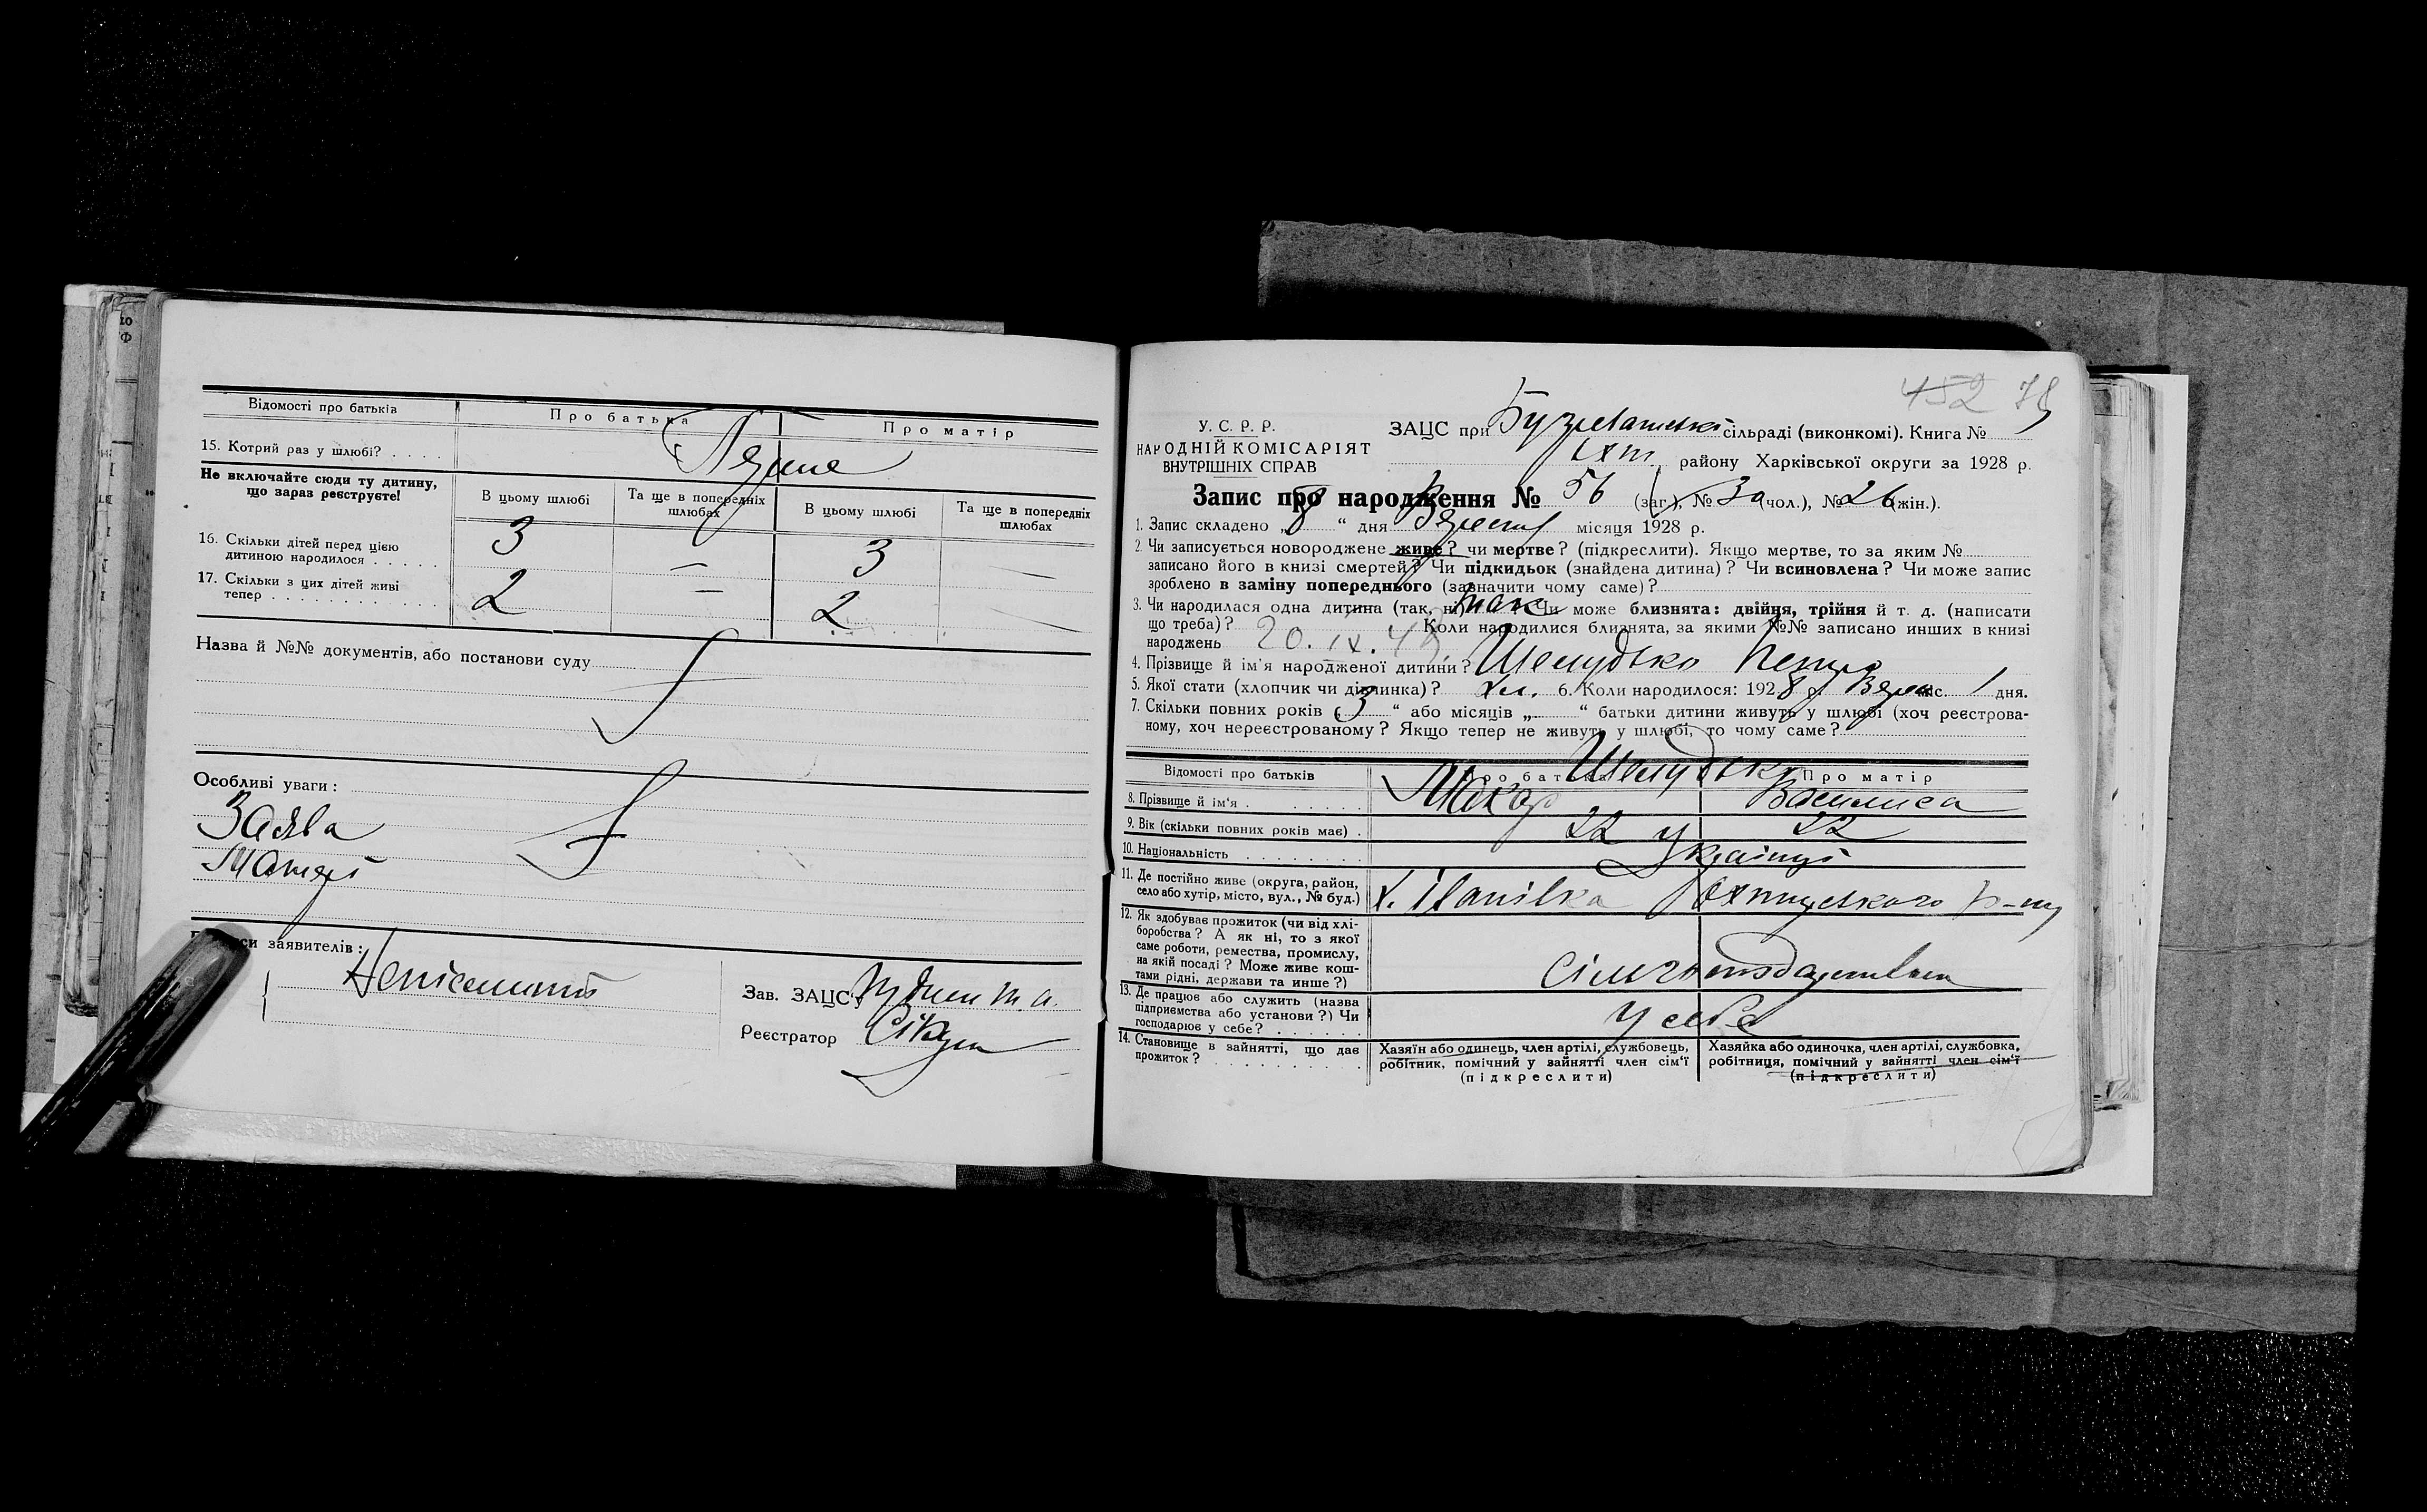 Відомості про батьків
Про батька
Про матір
15. Котрий раз у шлюбі? . . . .
Перше
Не включайте сюди ту дитину,
що зараз реєструєте!
В цьому шлюбі
Та ще в попередніх
шлюбах
В цьому шлюбі
Та ще в попередніх
шлюбах
16. Скільки дітей перед цією
дитиною народилося . . . . .
3 — 3 —
17. Скільки з цих дітей живі
тепер . . . . . . . . . . . .
2 — 2 —
Назва й №№ документів, або постанови суду
Особливі уваги:
Заява
Матері
заявителів:
Неписьмений
Зав. ЗАЦС
Реєстратор
452 78
У. С. Р. Р.
НАРОДНІЙ КОМІСАРІЯТ
ВНУТРІШНІХ СПРАВ
ЗАЦС при сільраді (виконкомі). Книга №
Охт. району Харківської округи за 1928 р.
Запис про народження № 56 (заг.), № 30 (чол.), № 26 (жін.).
1. Запис складено „8“ дня Вересня місяця 1928 р.
2. Чи записується новороджене живе? чи мертве? (підкреслити). Якщо мертве, то за яким №
записано його в книзі смертей? Чи підкидьок (знайдена дитина)? Чи всиновлена? Чи може запис
зроблено в заміну попереднього (зазначити чому саме)?
3. Чи народилася одна дитина (так, ні)? так Чи може близнята: двійня, трійня й т. д. (написати
що треба)? Коли народилися близнята, за якими №№ записано инших в книзі
народжень 20. IX. 48.
4. Прізвище й ім'я народженої дитини? Шелудько Петро
5. Якої стати (хлопчик чи дівчинка)? хл. 6. Коли народилося: 1928 р. Верес міс. 1 дня.
7. Скільки повних років „3“ або місяців „ “ батьки дитини живуть у шлюбі (хоч реєстрова-
ному, хоч нереєстрованому? Якщо тепер не живуть у шлюбі, то чому саме?
Відомості про батьків
Про батька
Про матір
Шелудько
8. Прізвище й ім'я . . . . . . . Макар Василиса
9. Вік (скільки повних років має) . 22 22
10. Національність . . . . . . . . Українці
11. Де постійно живе (округа, район,
село або хутір, місто, вул., № буд.)
х. Іванівка Охтирського р-ну
12. Як здобуває прожиток (чи від хлі-
боробства? А як ні, то з якої
саме роботи, ремества, промислу,
на якій посаді? Може живе кош-
тами рідні, держави та инше?)
13. Де працює або служить (назва
підприємства або установи?) Чи
господарює у себе? . . . . . .
У себе
14. Становище в зайнятті, що дає
прожиток? . . . . . . . . . .
Хазяїн або одинець, член артілі, службовець,
робітник, помічний у зайнятті член сім'ї
(підкреслити)
Хазяйка або одиночка, член артілі, службовка,
робітниця, помічний у зайнятті член сім'ї
(підкреслити)